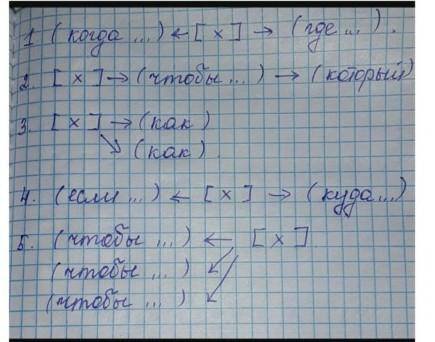 1. (когда ...) ← [ х ] → (где ...) .
2. [ х ] → (чтобы ...) → (который)
3. [ х ] → (как)
↘ (как) .
4. (если ...) ← [ х ] → (куда ...)
5. (чтобы ...) ← [ х ]
(чтобы ...) ↙
(чтобы ...) ↙